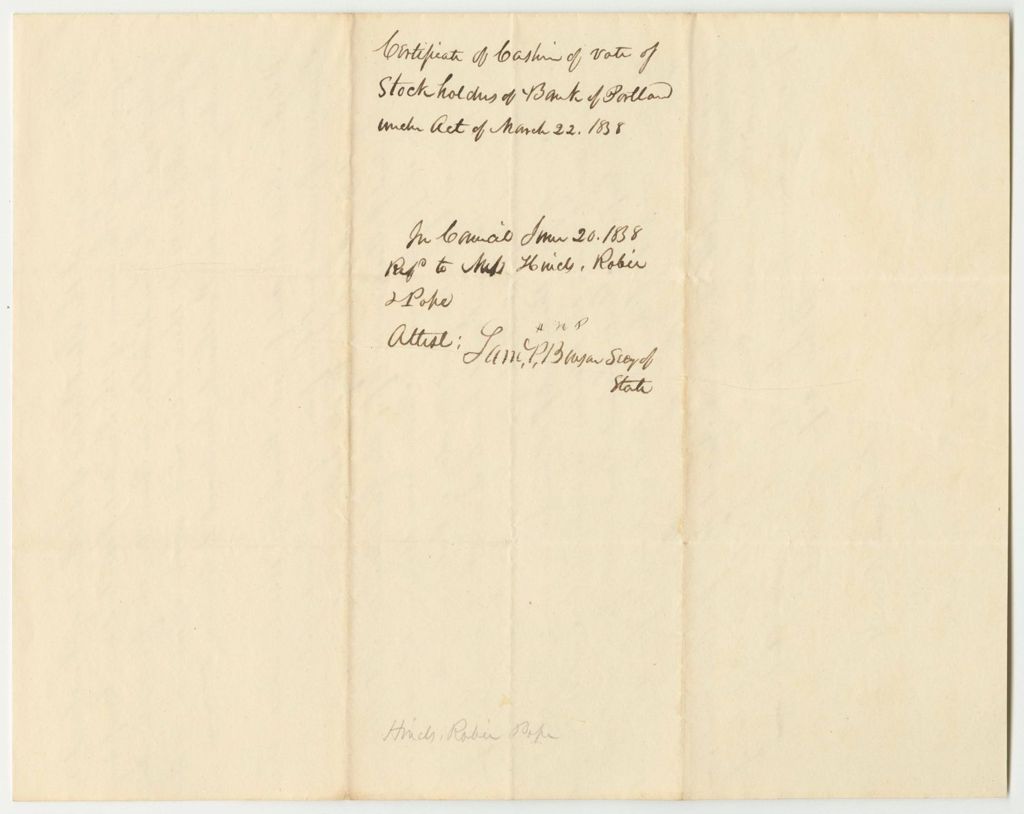 Certificate of Cashier of vote of
Stockholders of Bank of Portland
under Act of March 22. 1838
In Council June 20. 1838
Refd to Mess Hinds, Robie
& Pope
H R P
Attest: Saml. P. Benson Secy of
State
Hinds, Robie Pope